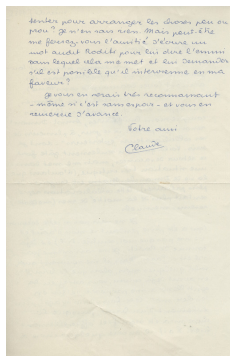 tenter pour arranger les choses peu ou
prou ? Je n'en sais rien. Mais peut-être
me ferez-vous l'amitié d'écrire un
mot audit Rodut pour lui dire l'ennui
dans lequel cela me met et lui demander
s'il est possible qu'il intervienne en ma
faveur ?
Je vous en serais très reconnaissant
- même si c'est sans espoir - et vous en
remercie d'avance
Votre ami